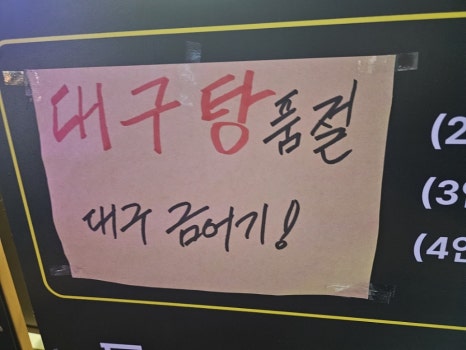 대구탕품절
대구 금어기!
(2
(3인
(4인